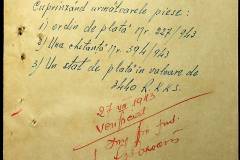 Cuprinzând următoarele piese:
1) ordin de plată Nr. 227/943
2) Una chitanță Nr. 394/943
3) Un stat de plată în valoare de
3440 R.K.K.S.
27 VII 1943